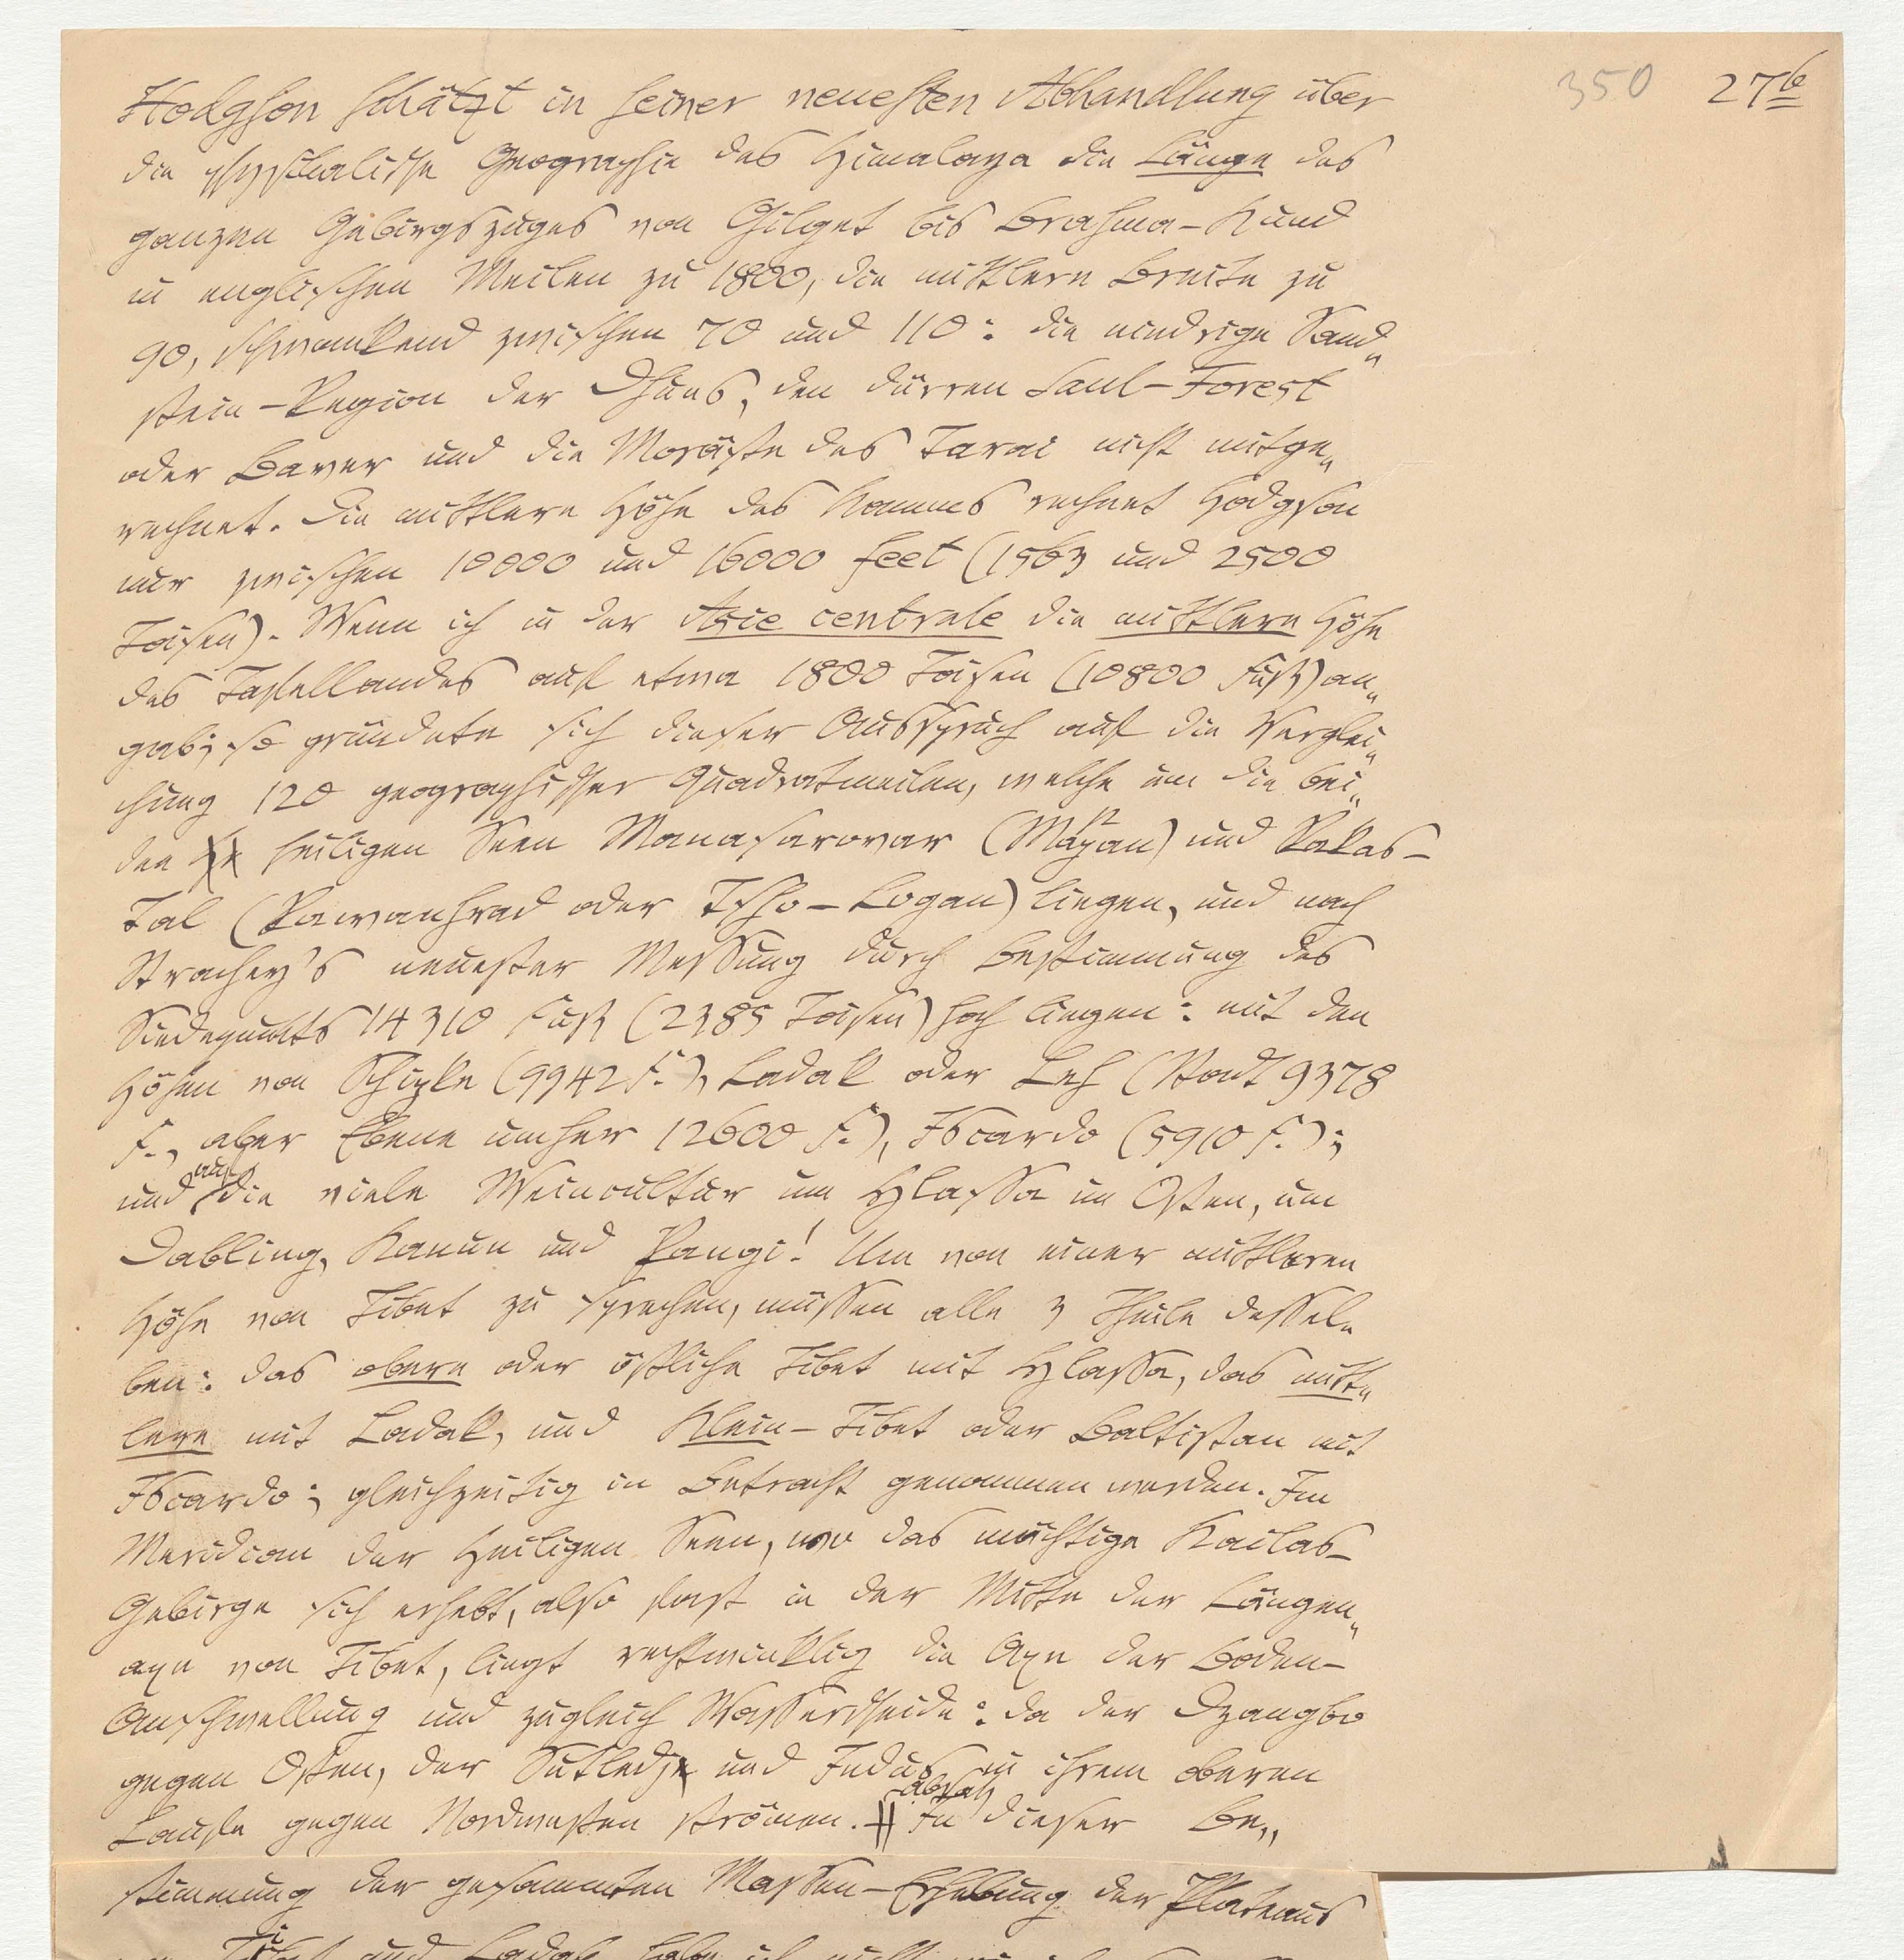 350 27b
Hodgson schätzt in seiner neuesten Abhandlung über
die physikalische Geographie des Himalaya die Länge des
ganzen Gebirgszuges von Gilget bis Brahma-Kund
in englischen Meilen zu 1800, die mittlere Breite zu
90, schwankend zwischen 70 und 110: die niedrige Sand„
stein-Region der Dhuns, den dürren Saul-Forest
oder Baver und die Moräste des Tarai nicht mitge„
rechnet. Die mittlere Höhe des Kamms rechnet Hodgson
nur zwischen 10000 und 16000 feet (1563 und 2500
Toisen). Wenn ich in der Asie centrale die mittlere Höhe
des Tafellandes auf etwa 1800 Toisen (10800 Fuß) an„
gab; so gründete sich dieser Ausspruch auf die Verglei„
chung 120 geographischer Quadratmeilen, welche um die bei„
den heiligen Seen Manasarovar (Mapan) und Rakas-
Tal (Rawanhrad oder Tso-Logan) liegen, und nach
Strachey's neuester Messung durch Bestimmung des
Siedepunkts 14310 Fuß (2385 Toisen) hoch liegen: mit den
Höhen von Schipke (9942 F.), Ladak oder Leh (Stadt 9378
F., aber Ebene umher 12600 F.), Iscardo (5910 F.);
und auf die viele Weincultur um Hlassa im Osten, um
Dabling, Kanun und Pangi! Um von einer mittleren
Höhe von Tibet zu sprechen, müssen alle 3 Theile dessel„
ben: das obere oder östliche Tibet mit Hlassa, das mitt„
lere mit Ladak, und Klein-Tibet oder Baltistan mit
Iscardo; gleichzeitig in Betracht genommen werden. Im
Meridian der Heiligen Seen, wo das mächtige Kailas-
Gebirge sich erhebt, also fast in der Mitte der Längen„
axe von Tibet, liegt rechtwinklig die Axe der Boden-
Anschwellung und zugleich Wasserscheide: da der Dzangbo
gegen Osten, der Sutledj und Indus in ihrem oberen
Laufe gegen Nordwesten strömen. Absatz In dieser Be„
stimmung der gesammten Massen-Erhebung der Plateaus
Tibet und Ladak habe ich nicht